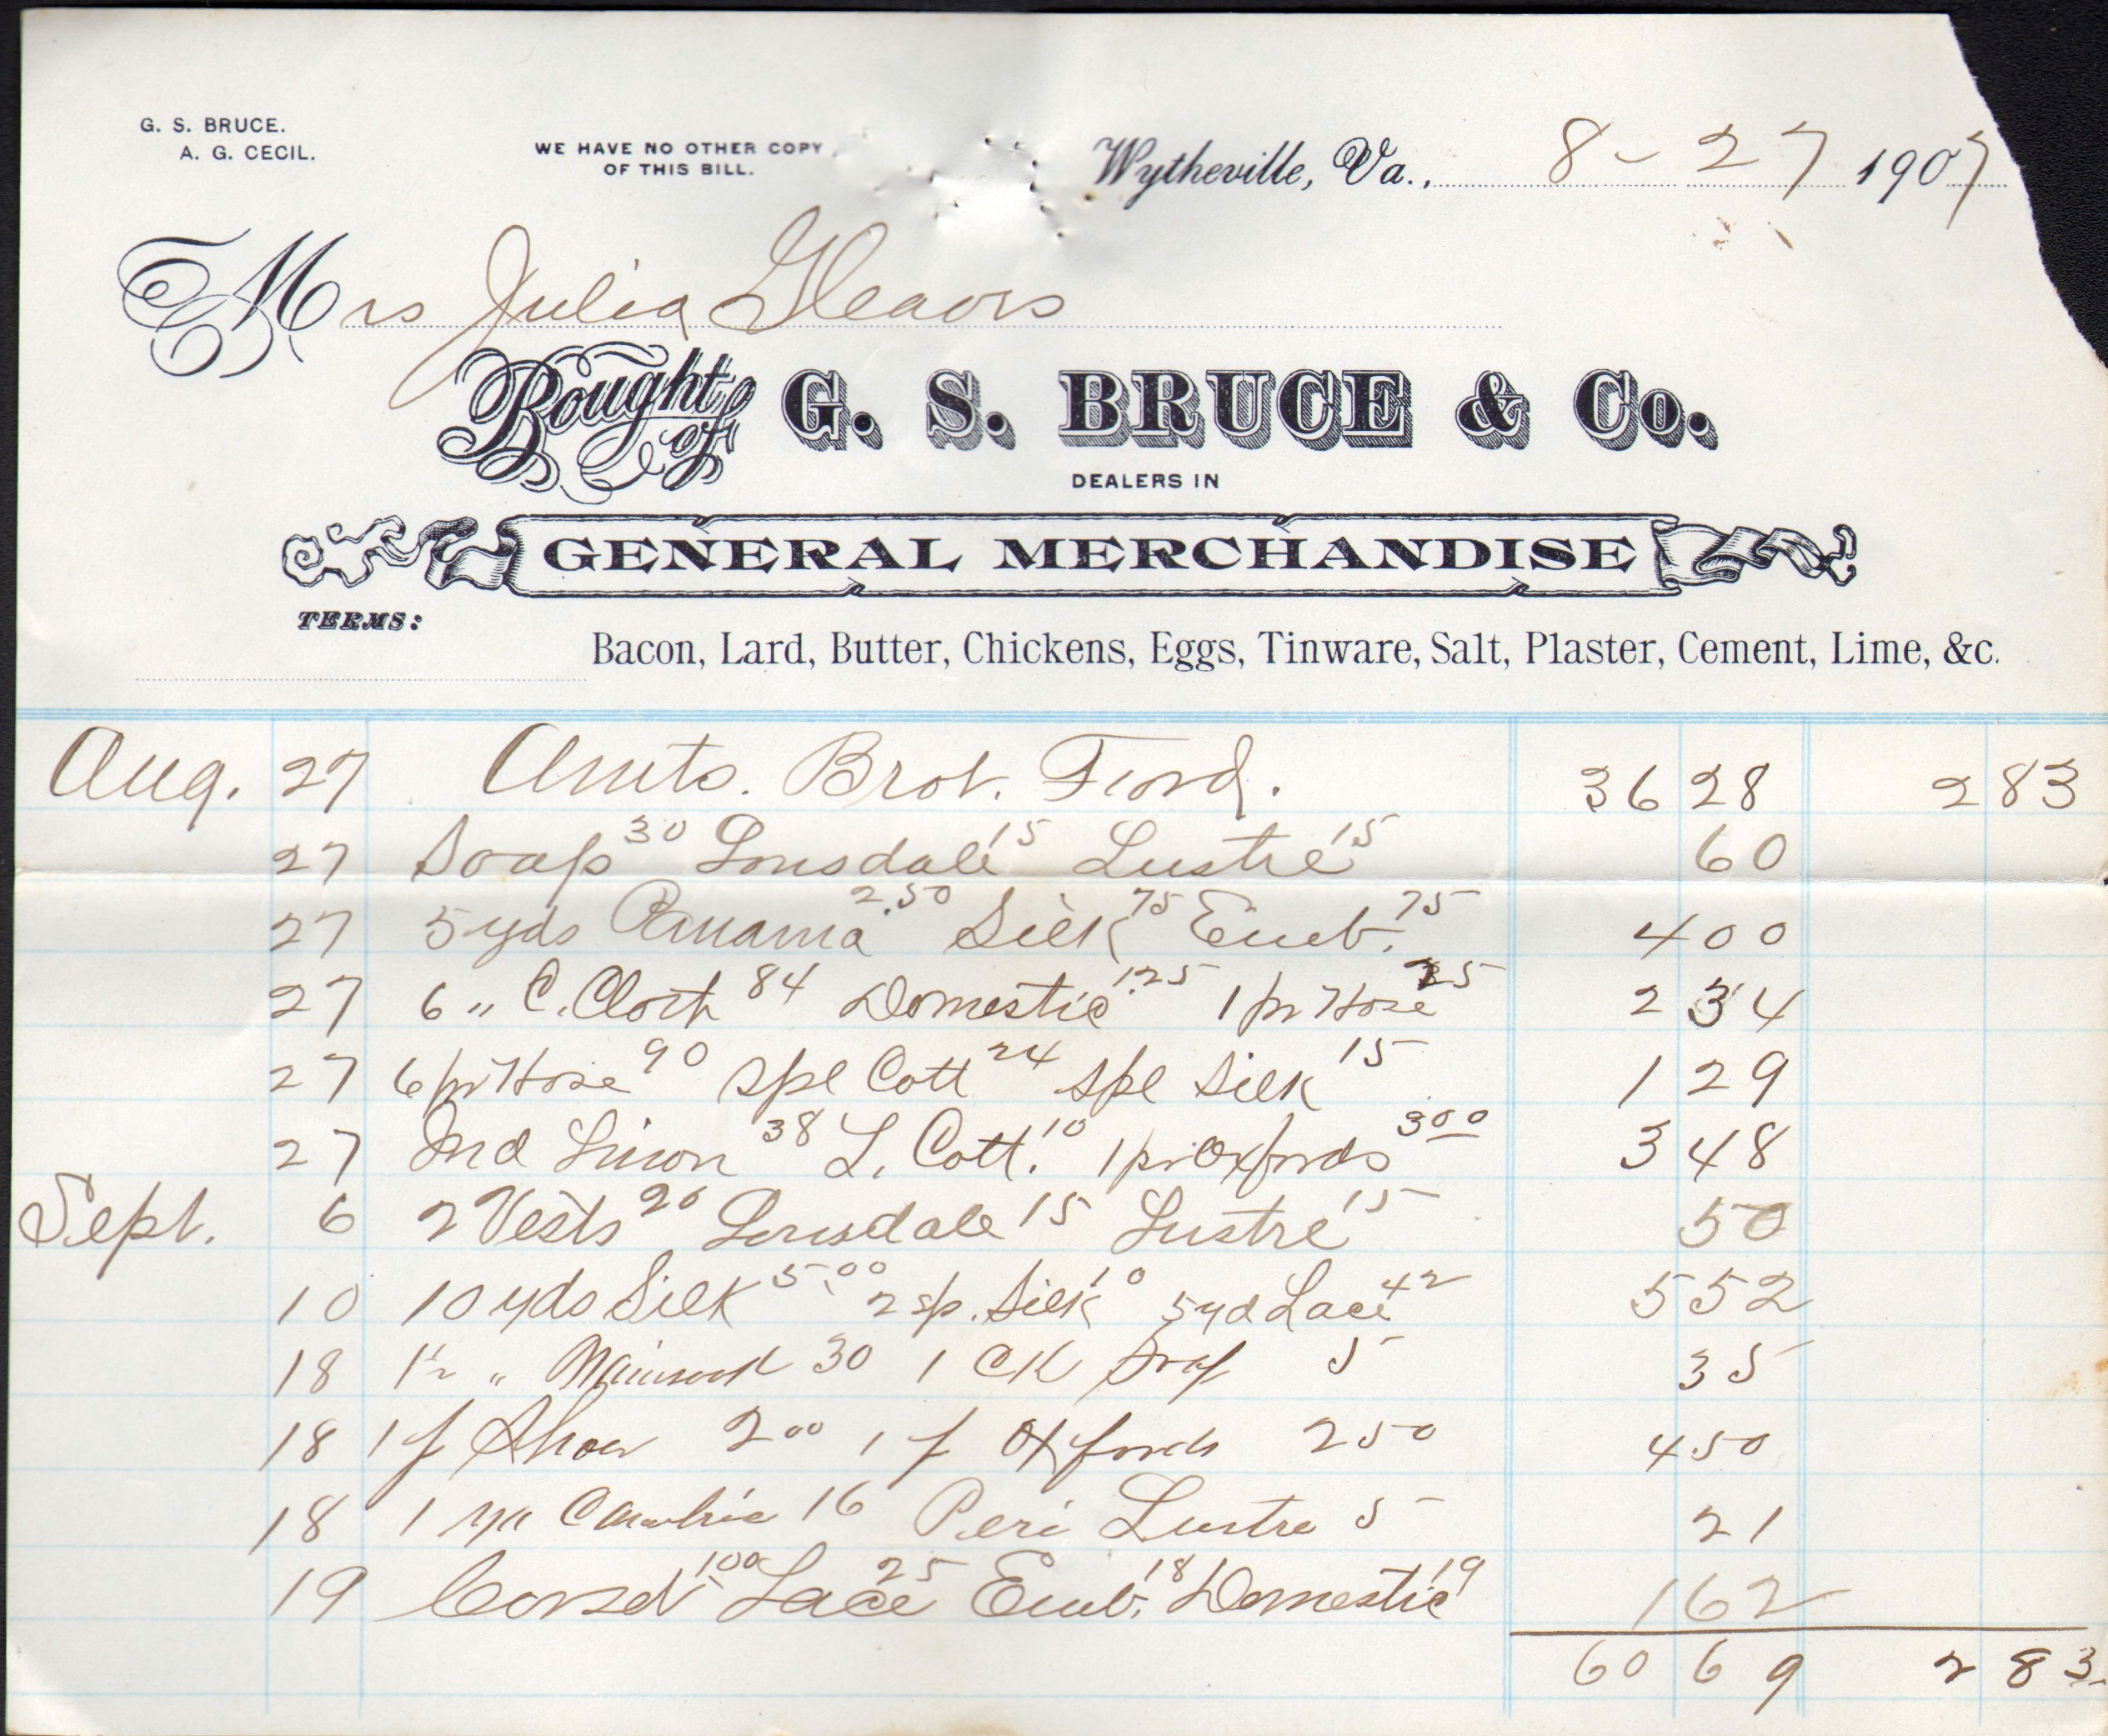 G. S. BRUCE.
A. G. CECIL.
WE HAVE NO OTHER COPY
OF THIS BILL.
Wytheville, Va., 8-27 1907
Mrs Julia Gleaves
Bought of G. S. BRUCE & Co.
DEALERS IN
GENERAL MERCHANDISE
TERMS:
Bacon, Lard, Butter, Chickens, Eggs, Tinware, Salt, Plaster, Cement, Lime, &c.
Aug. 27 Amts. Brot. Ford. 36 28 2 83
27 Soap 30 Lonsdale 15 Lustre 15 60
27 5 yds Panama 2.50 Silk 75 Emb. 75 4 00
27 6 " C. Cloth 84 Domestic 1.25 1 pr Hose 25 2 34
27 6 pr Hose 90 Spl Cott 24 Spl Silk 15 1 29
27 Ind Linon 38 L. Cott. 10 1 pr Oxfords 3 00 3 48
Sept. 6 2 Vests 20 Lonsdale 15 Lustre 15 50
10 10 yds Silk 5.00 2 sp. Silk 10 5 yd Lace 42 5 52
18 1½ " Nainsook 30 1 CK 5 35
18 1 p Shoes 2 00 1 p Oxfords 2 50 4 50
18 1 yd Cambric 16 Peri Lustre 5 21
19 Corset 1 00 Lace 25 Emb. 18 Domestic 19 1 62
60 69 2 83